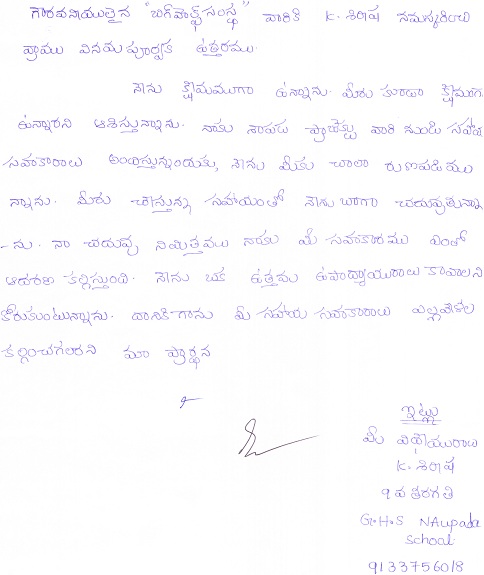 గౌరవనీయులైన "బిగ్‌హెల్ప్ సంస్థ" వారికి K. శిరీష నమస్కరించి
వ్రాయు వినయ పూర్వక ఉత్తరము.
నేను క్షేమముగా ఉన్నాను. మీరు కూడా క్షేమంగా
ఉన్నారని ఆశిస్తున్నాను. నాకు నౌపడ ప్రాజెక్టు వారి నుండి సహాయ
సహకారాలు అందిస్తున్నందుకు, నేను మీకు చాలా రుణపడియు
న్నాను. మీరు చేస్తున్న సహాయంతో నేను బాగా చదువుతున్నా
-ను. నా చదువు నిమిత్తము నాకు మీ సహకారము ఎంతో
ఆదరణ కల్గిస్తుంది. నేను ఒక ఉత్తమ ఉపాధ్యాయురాలు కావాలని
కోరుకుంటున్నాను. దానికి గాను మీ సహాయ సహకారాలు ఎల్లవేళల
కల్గించగలరని మా ప్రార్థన
ఇట్లు
మీ విధేయురాలు
K. శిరీష
9వ తరగతి
G.H.S NAupada
School
9133756018